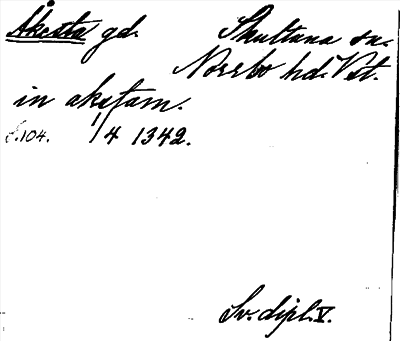 Åkesta gd. Skultuna sn.
Norrbo hd. Vst.
in akistam.
S.104. 1/4 1342.
Sv. dipl. V.